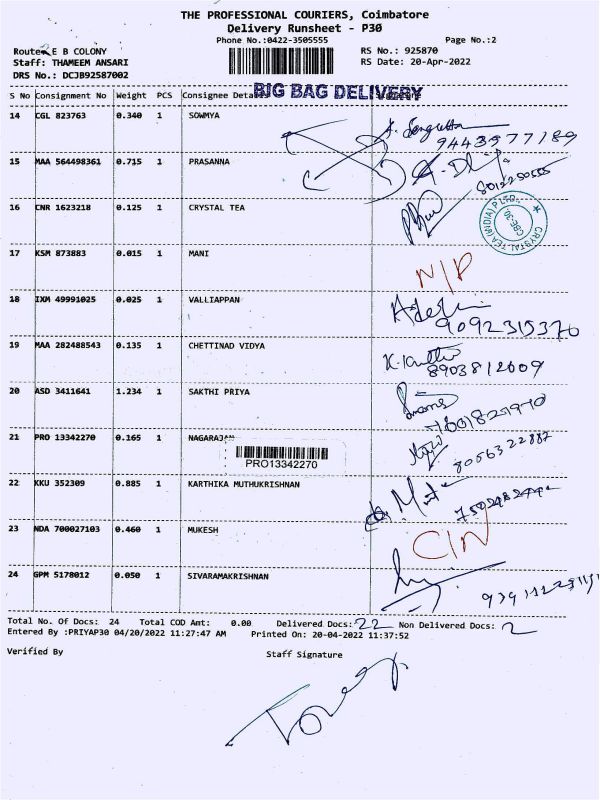 THE PROFESSIONAL COURIERS, Coimbatore
Delivery Runsheet - P30
Phone No.:0422-3505555 Page No.:2
Route: E B COLONY RS No.: 925870
Staff: THAMEEM ANSARI RS Date: 20-Apr-2022
DRS No.: DCJB92587002
BIG BAG DELIVERY
S No Consignment No Weight PCS Consignee Details
14 CGL 823763 0.340 1 SOWMYA
9443977189
15 MAA 564498361 0.715 1 PRASANNA
16 CNR 1623218 0.125 1 CRYSTAL TEA
CRYSTAL TEA (INDIA) P LTD. CBE-30
17 KSM 873883 0.015 1 MANI N/D
18 IXM 49991025 0.025 1 VALLIAPPAN
9092315370
19 MAA 282488543 0.135 1 CHETTINAD VIDYA
8903812609
20 ASD 3411641 1.234 1 SAKTHI PRIYA
21 PRO 13342270 0.165 1 NAGARAJAN
8056322887
PRO13342270
22 KKU 352309 0.885 1 KARTHIKA MUTHUKRISHNAN
23 NDA 700027103 0.460 1 MUKESH C/N
24 GPM 5178012 0.050 1 SIVARAMAKRISHNAN
Total No. Of Docs: 24 Total COD Amt: 0.00 Delivered Docs: 22 Non Delivered Docs: 2
Entered By :PRIYAP30 04/20/2022 11:27:47 AM Printed On: 20-04-2022 11:37:52
Verified By Staff Signature